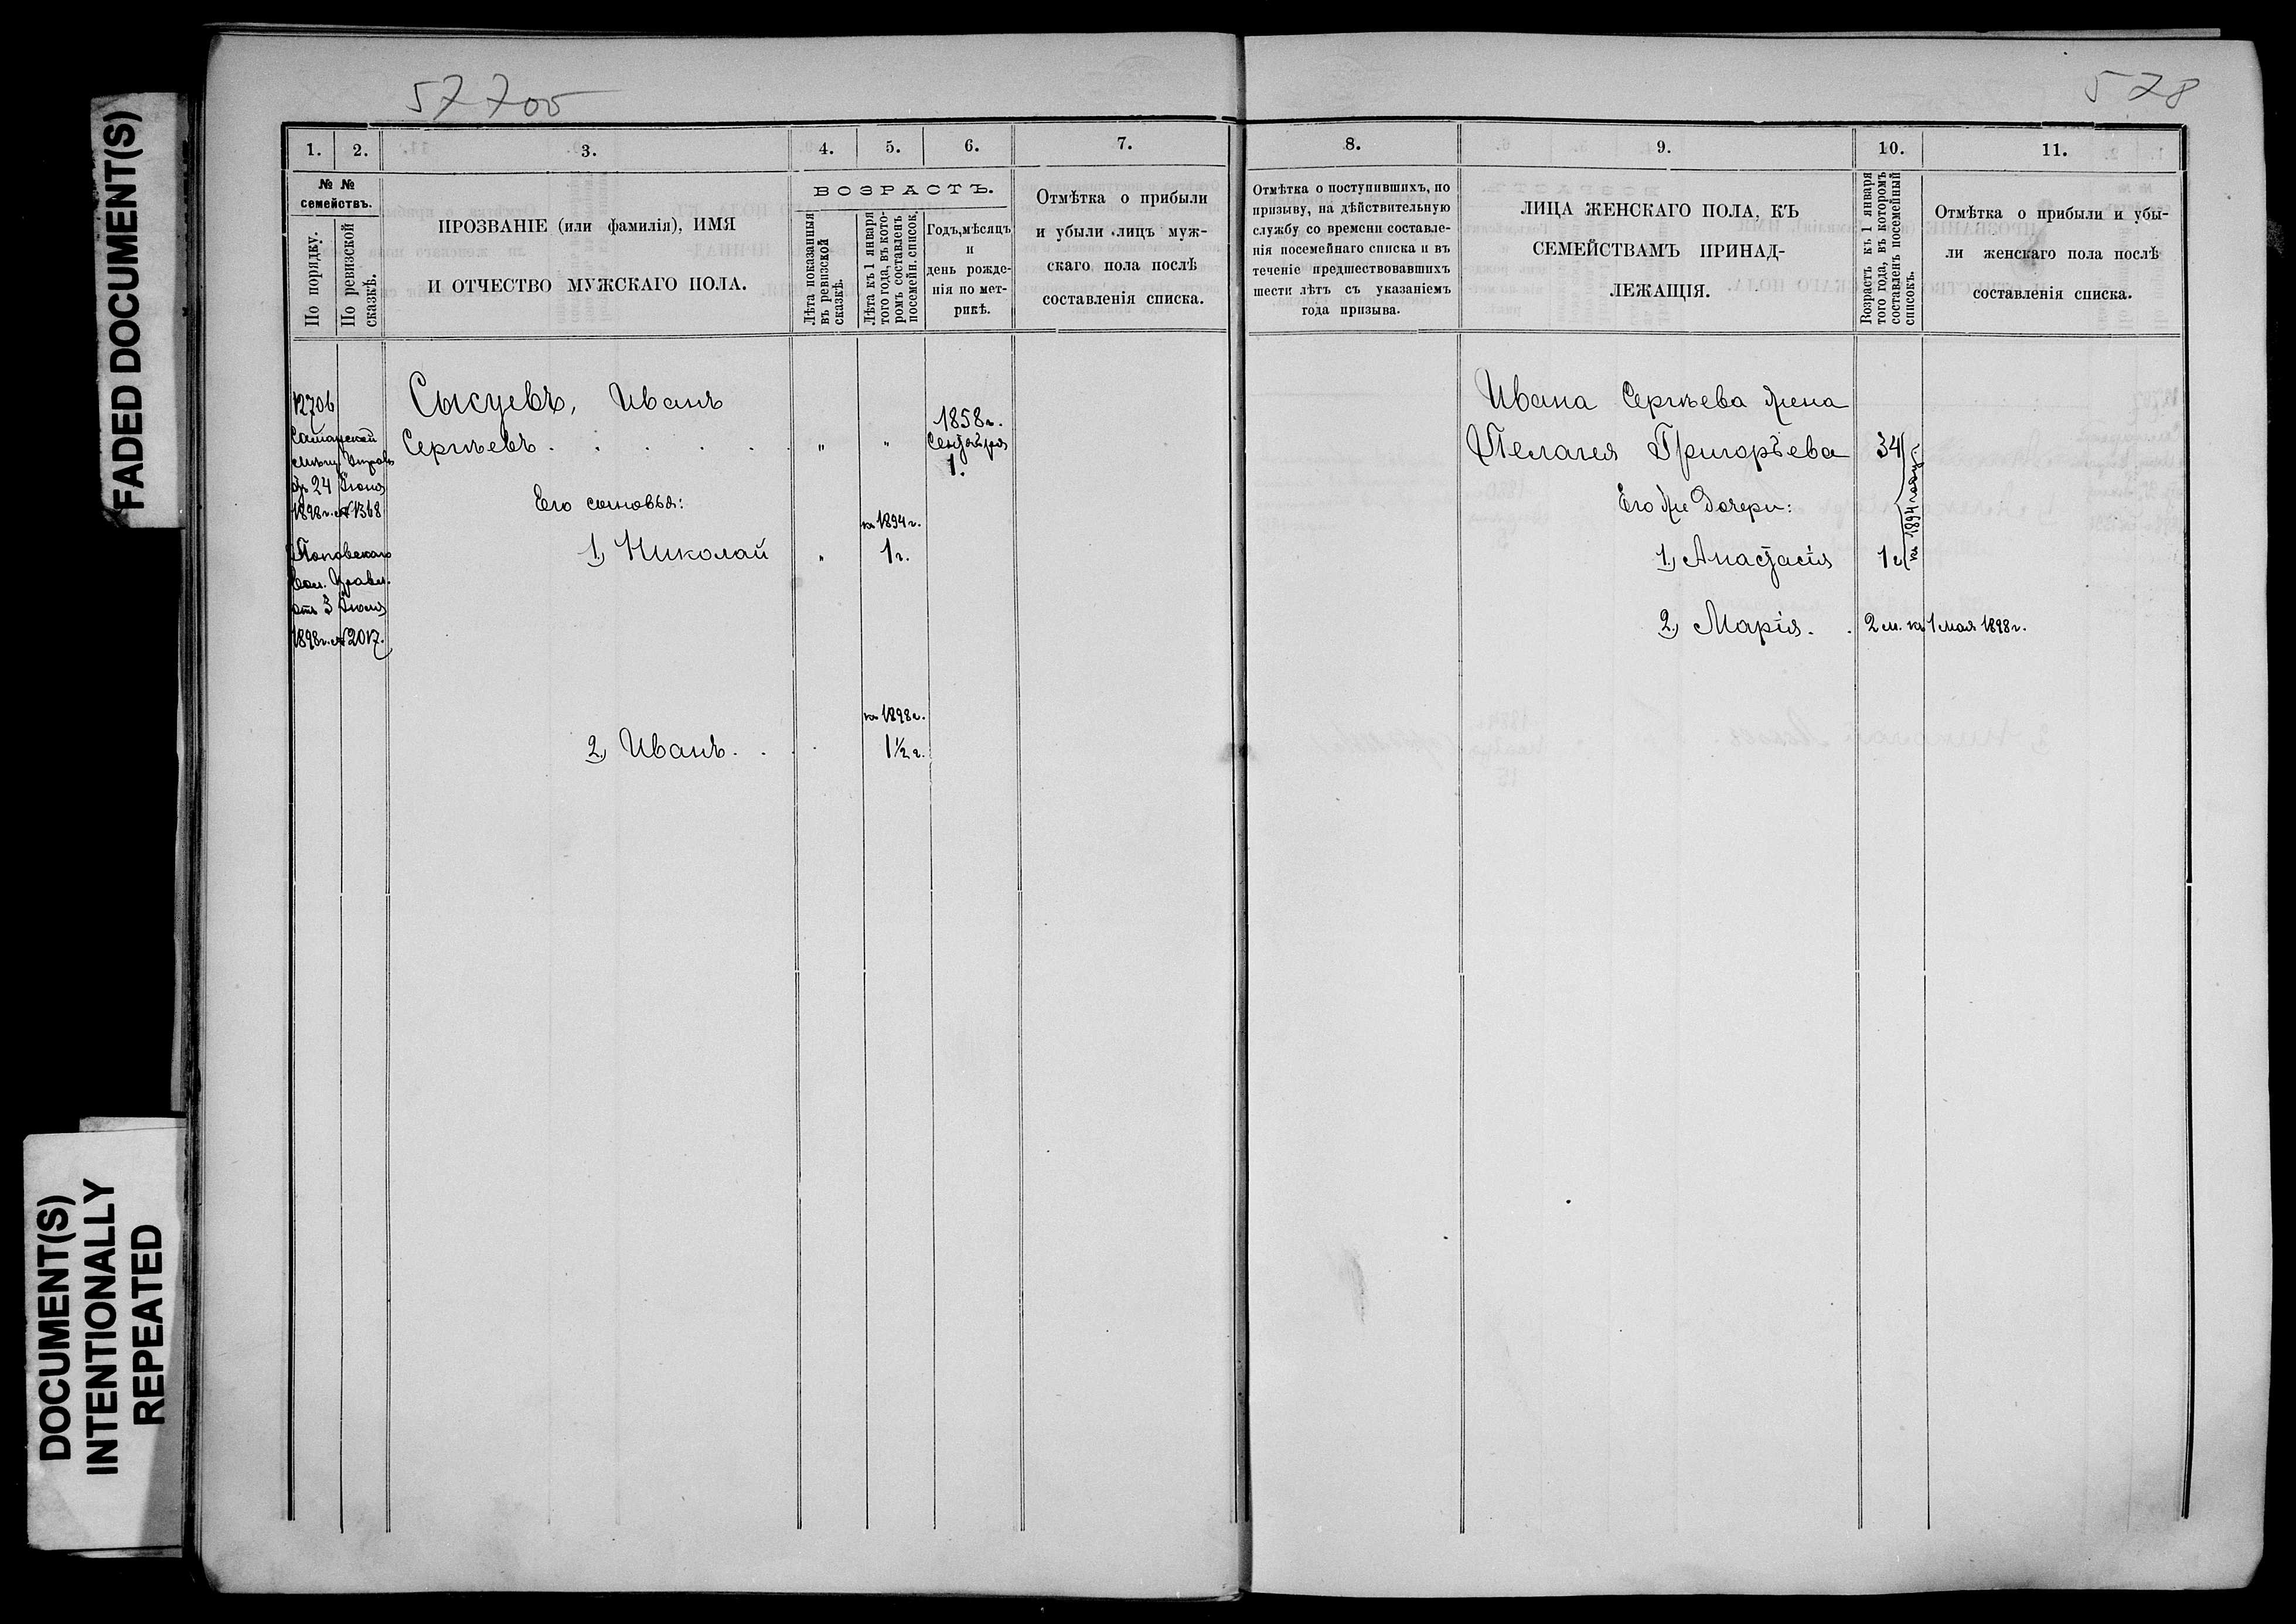 FADED DOCUMENT(S)
DOCUMENT(S)
INTENTIONALLY
REPEATED
577об
578
1. 2. 3. 4. 5. 6. 7.
№ №
семействъ.
По порядку.
По ревизской
сказкѣ.
ПРОЗВАНІЕ (или фамилія), ИМЯ
И ОТЧЕСТВО МУЖСКАГО ПОЛА.
ВОЗРАСТЪ.
Лѣта показанныя
въ ревизской
сказкѣ.
Лѣта къ 1 января
того года, въ кото-
ромъ составленъ
посемейн. списокъ.
Годъ, мѣсяцъ
и
день рожде-
нія по мет-
рикѣ.
Отмѣтка о прибыли
и убыли лицъ муж-
скаго пола послѣ
составленія списка.
12706
Самарской
мѣщ. Управ.
отъ 24 Іюня
1898 г. № 1368
Поповскаго
Вол. Правл.
отъ 3 Іюля
1898 г. № 2017.
Сысуевъ, Иванъ
Сергѣевъ . . . . . " "
1858 г.
Сентября
1.
Его сыновья:
къ 1894 г.
1, Николай " 1 г.
къ 1898 г.
2, Иванъ . . . 1½ г.
8. 9. 10. 11.
Отмѣтка о поступившихъ, по
призыву, на дѣйствительную
службу со времени составле-
нія посемейнаго списка и въ
теченіе предшествовавшихъ
шести лѣтъ съ указаніемъ
года призыва.
ЛИЦА ЖЕНСКАГО ПОЛА, КЪ
СЕМЕЙСТВАМЪ ПРИНАД-
ЛЕЖАЩІЯ.
Возрастъ къ 1 января
того года, въ которомъ
составленъ посемейный
списокъ.
Отмѣтка о прибыли и убы-
ли женскаго пола послѣ
составленія списка.
Ивана Сергѣева жена
Пелагея Григорьева 34
Его же дочери:
1, Анастасія 1 г.
къ 1894 году.
2, Марія . . 2 м. къ 1 мая 1898 г.